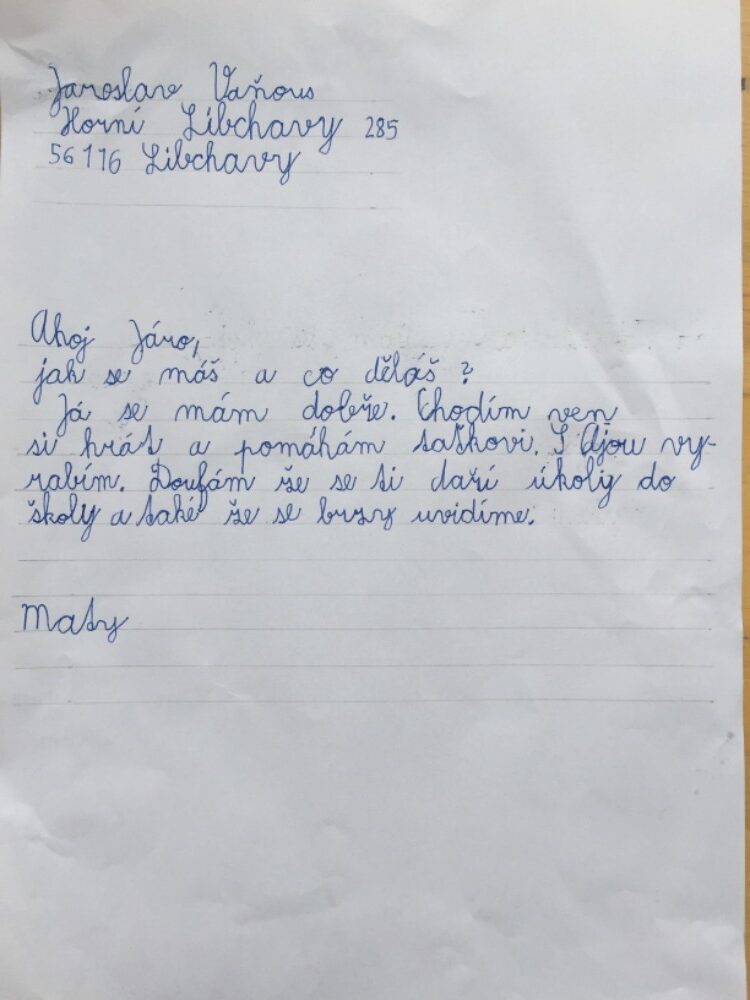 Jaroslav Vaňous
Horní Libchavy 285
56116 Libchavy
Ahoj Járo,
jak se máš a co děláš?
Já se mám dobře. Chodím ven
si hrát a pomáhám taťkovi. S Ajou vy-
rabím. Doufám že se ti daří úkoly do
školy a také že se brzy uvidíme.
Maty